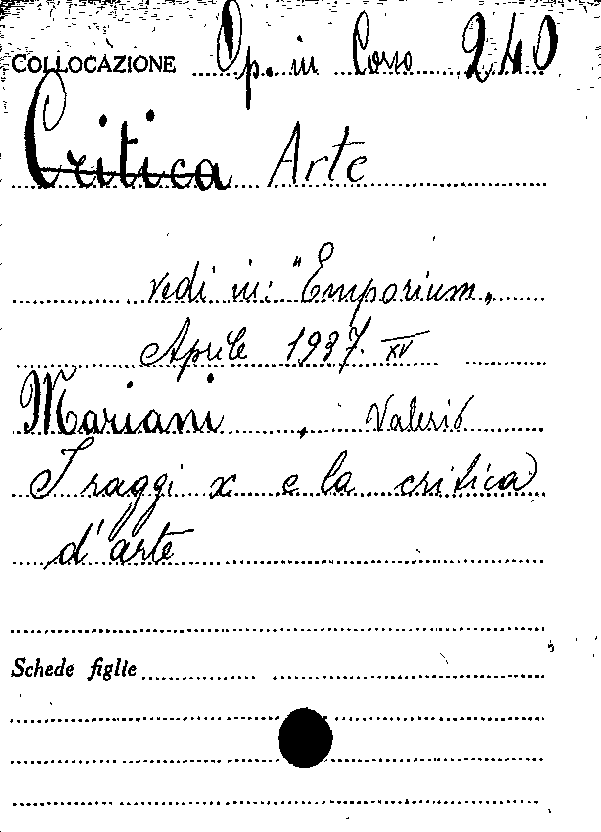 COLLOCAZIONE Op. in Corso 240
Critica Arte
vedi in: "Emporium„
Aprile 1937. XV
Mariani, Valerio
I raggi x e la critica
d'arte
Schede figlie